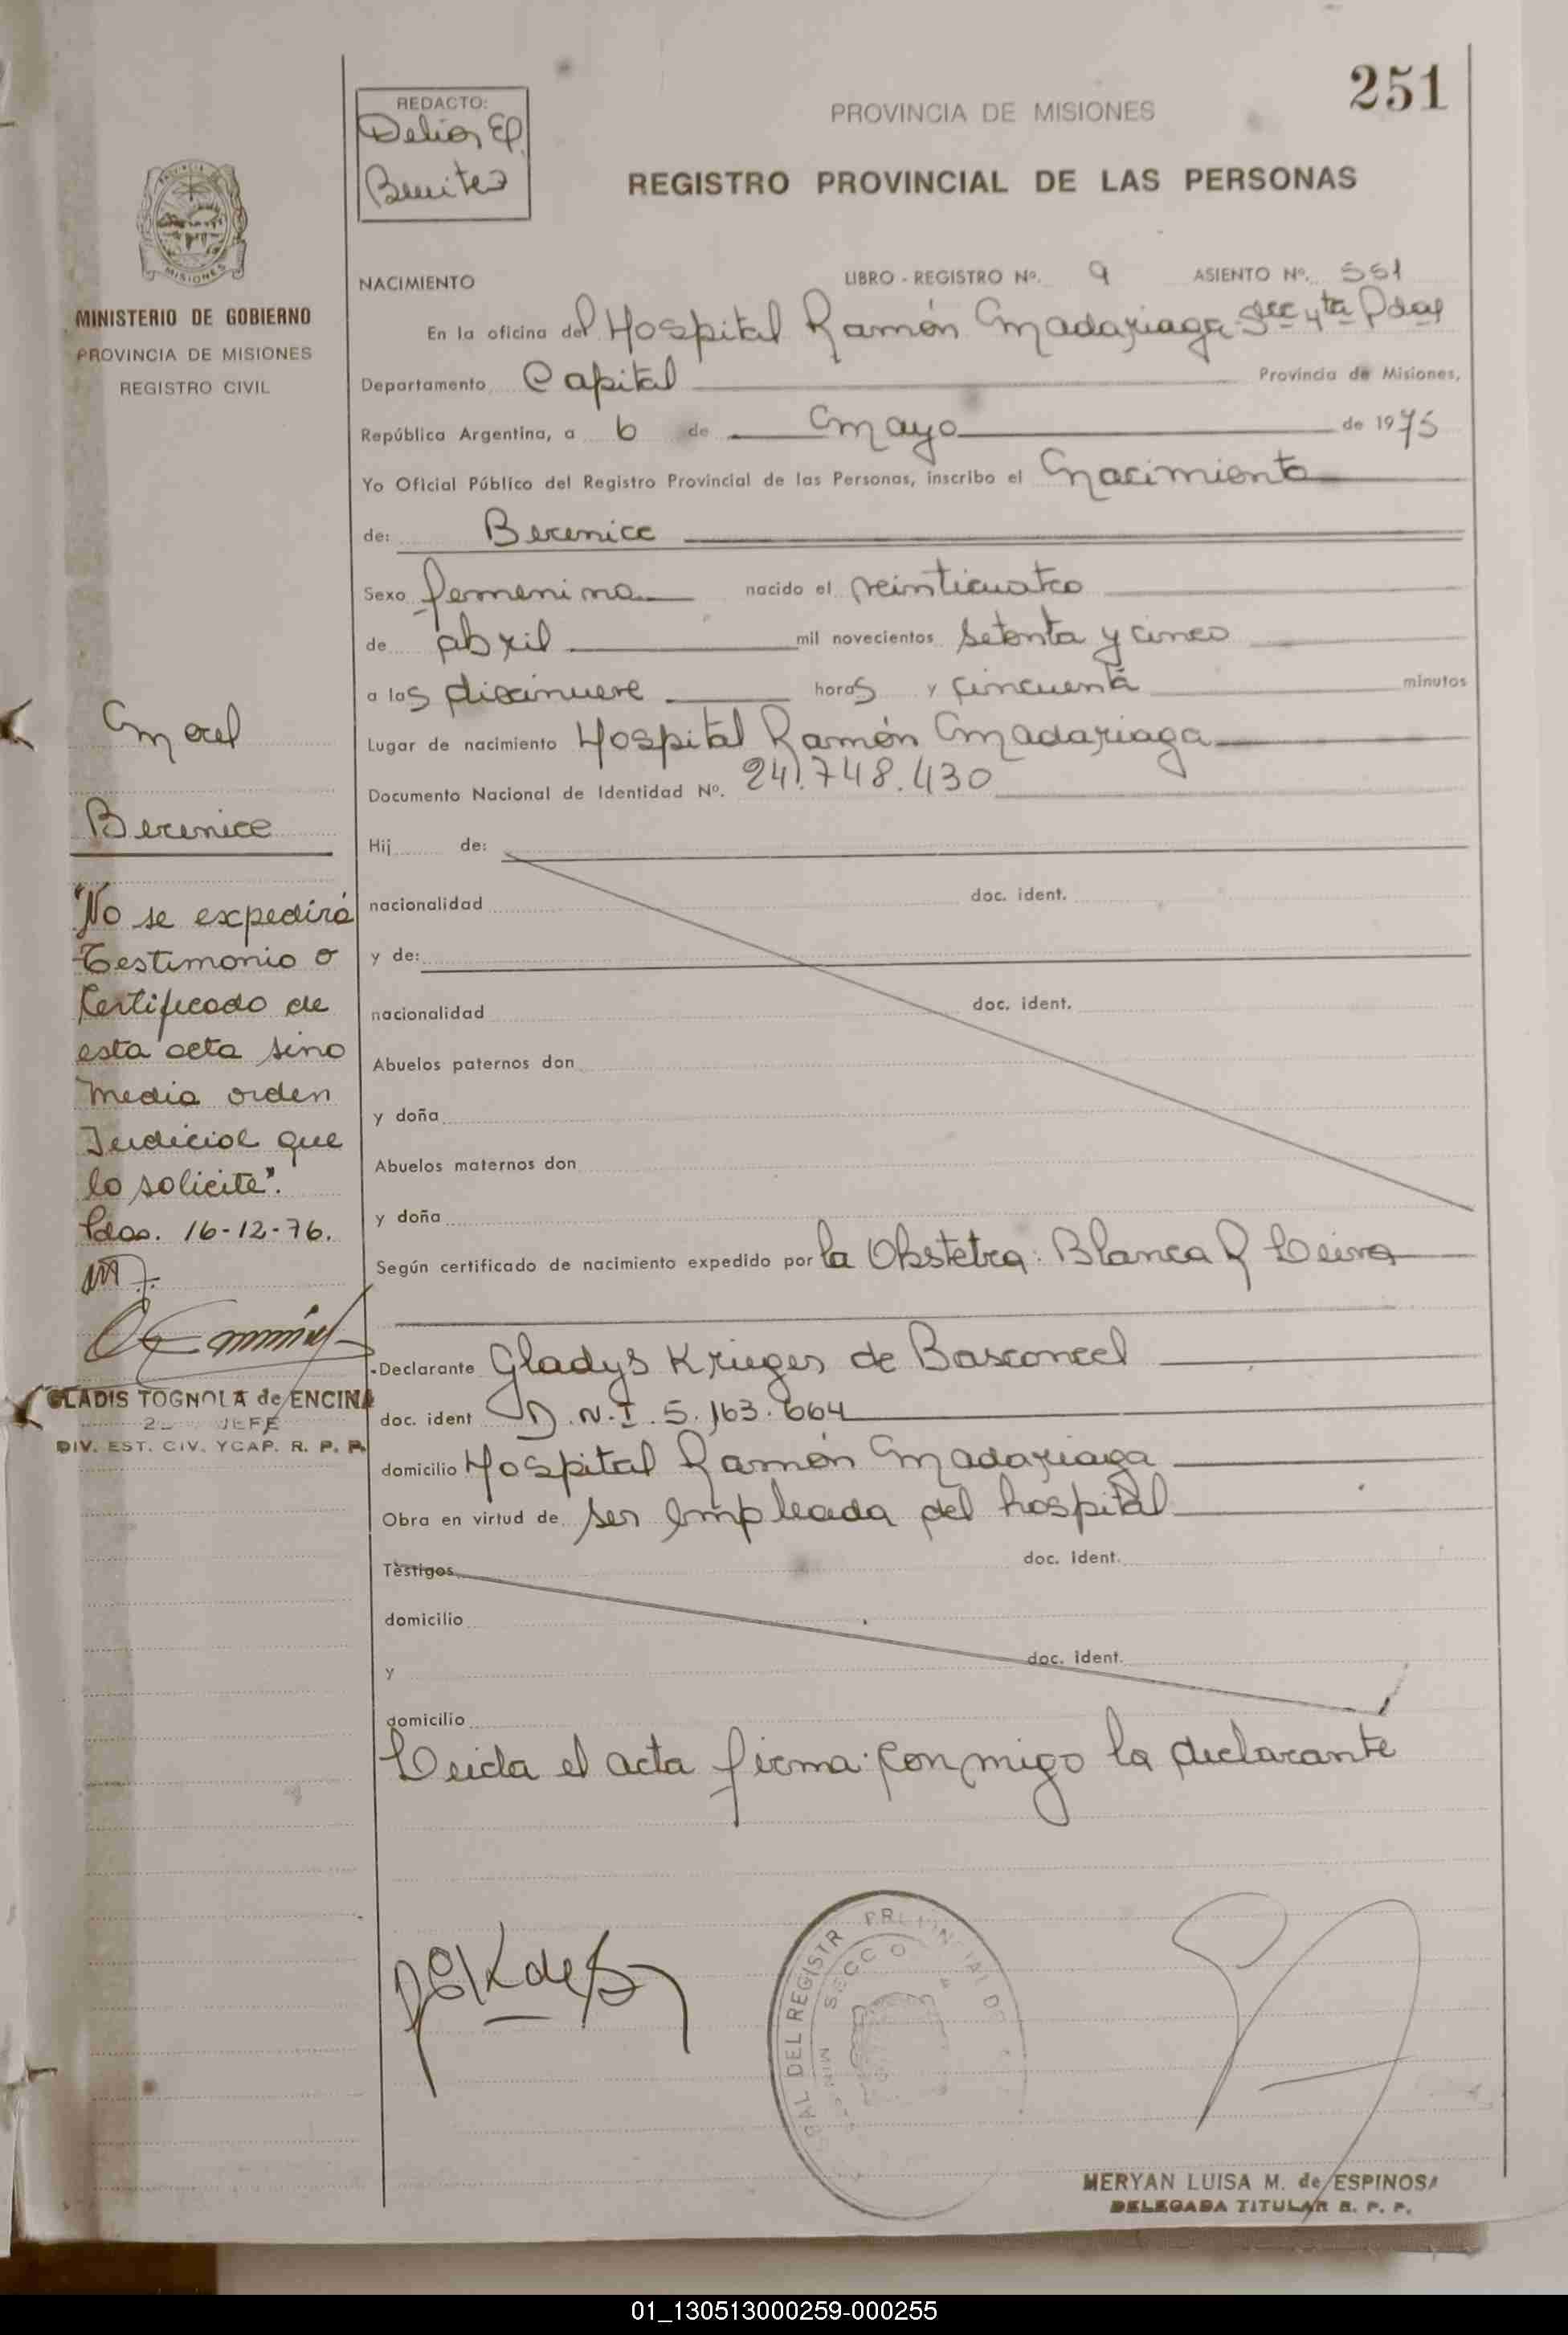 251
REDACTO:
Delia E.
Benitez
PROVINCIA DE MISIONES
REGISTRO PROVINCIAL DE LAS PERSONAS
MISIONES
MINISTERIO DE GOBIERNO
PROVINCIA DE MISIONES
REGISTRO CIVIL
NACIMIENTO LIBRO - REGISTRO Nº. 9 ASIENTO Nº. 551
En la oficina del Hospital Ramón Madariaga Sec 4ta Pdas
Departamento Capital Provincia de Misiones,
República Argentina, a 6 de Mayo de 1975
Yo Oficial Público del Registro Provincial de las Personas, inscribo el Nacimiento
de: Berenice
Sexo femenino nacido el veinticuatro
de abril mil novecientos setenta y cinco
a las diecinueve horas y cincuenta minutos
Lugar de nacimiento Hospital Ramón Madariaga
Documento Nacional de Identidad Nº. 24.748.430
Hij de:
nacionalidad doc. ident.
y de:
nacionalidad doc. ident.
Abuelos paternos don
y doña
Abuelos maternos don
y doña
Según certificado de nacimiento expedido por la Obstetra: Blanca R Leiva
Declarante Gladys Krieger de Basconcel
doc. ident D.N.I. 5.163.664
domicilio Hospital Ramón Madariaga
Obra en virtud de ser empleada del hospital
Testigos doc. ident.
domicilio
y doc. ident.
domicilio
Leida el acta firma conmigo la declarante
Berenice
"No se expedirá
Testimonio o
Certificado de
esta acta sino
media orden
Judicial que
lo solicite".
Pdas. 16-12-76.
GLADIS TOGNOLA de ENCINA
JEFE
DIV. EST. CIV. YCAP. R. P. P.
DEL REGISTR PROVINCIAL DE
SECCIO 4
MERYAN LUISA M. de ESPINOSA
DELEGADA TITULAR R. P. P.
01_130513000259-000255